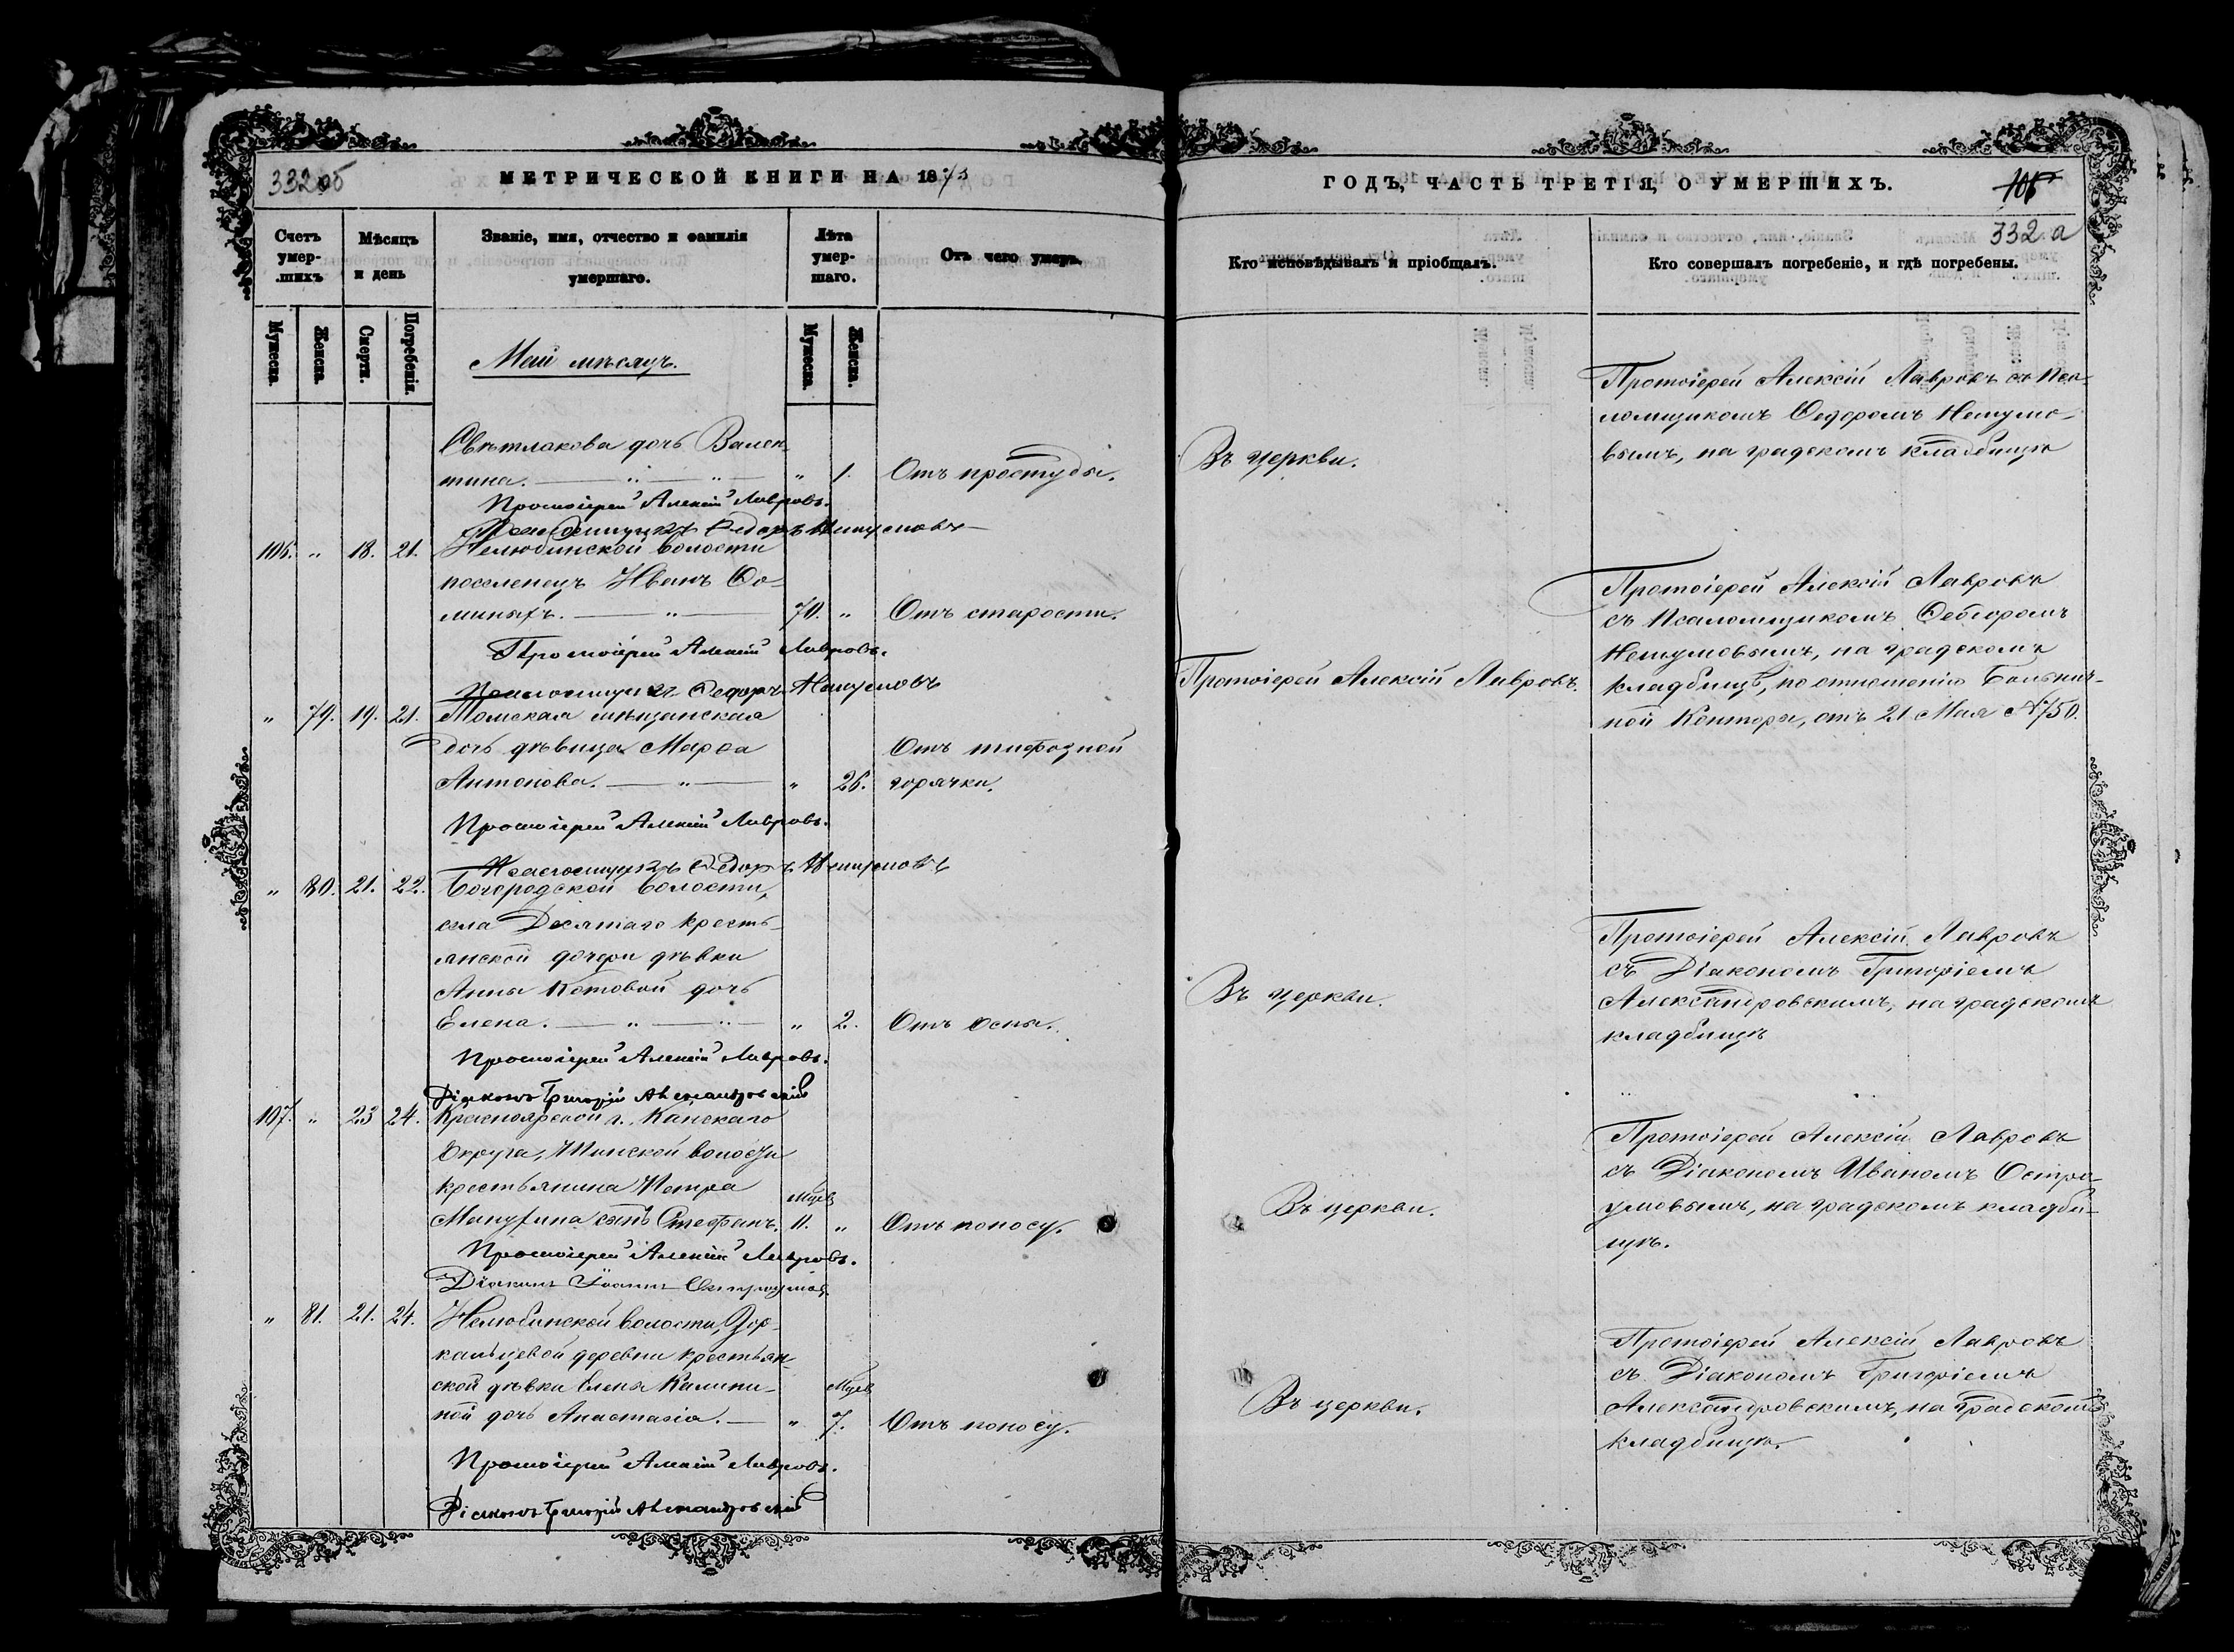 332 об
МЕТРИЧЕСКОЙ КНИГИ НА 1873
Счетъ умер-шихъ
Мѣсяцъ и день
Званіе, имя, отчество и фамилія умершаго.
Лѣта умер-шаго.
Отъ чего умеръ.
Мужеска.
Женска.
Смерти.
Погребенія.
Мужеска.
Женска.
Май мѣсяцъ.
Свѣтлакова дочь Вален-
тина. — „ — „ — „ 1. Отъ простуды.
Протоіерей Алексій Лавровъ.
Псаломщикъ Ѳедоръ Нешумовъ
106. „ 18. 21. Нелюбинской волости
поселенецъ Иванъ Ѳо-
миныхъ. — „ — 70. „ Отъ старости.
Протоіерей Алексій Лавровъ.
Псаломщикъ Ѳедоръ Нешумовъ
„ 79. 19. 21. Томская мѣщанская
дочь дѣвица Марѳа Отъ тифозной
Антонова. — „ — „ 26. горячки.
Протоіерей Алексій Лавровъ.
Псаломщикъ Ѳедоръ Нешумовъ
„ 80. 21. 22. Богородской волости,
села Десятаго кресть-
янской дочери дѣвки
Анны Котовой дочь
Елена. — „ — „ — „ 2. Отъ оспы.
Протоіерей Алексій Лавровъ.
Діаконъ Григорій Александровскій
107. „ 23 24. Красноярской г. Канскаго
округа, волости
крестьянина Петра мцев
сынъ Стефанъ. 11. „ Отъ поносу.
Протоіерей Алексій Лавровъ.
Діаконъ Іоаннъ Остроумов
„ 81. 21. 24. Нелюбинской волости, Зор-
кальцевой деревни крестьян-
ской дѣвки Елены Калини- мцев
ной дочь Анастасія. — „ 7. Отъ поносу.
Протоіерей Алексій Лавровъ.
Діаконъ Григорій Александровскій
ГОДЪ, ЧАСТЬ ТРЕТІЯ, О УМЕРШИХЪ.
332 а
Кто исповѣдывалъ и пріобщалъ.
Кто совершалъ погребеніе, и гдѣ погребены.
Протоіерей Алексій Лавровъ съ Пса-
ломщикомъ Ѳедоромъ Нешумо-
Въ церкви. вымъ, на градскомъ кладбищѣ
Протоіерей Алексій Лавровъ
съ Псаломщикомъ Ѳедоромъ
Нешумовымъ, на градскомъ
Протоіерей Алексій Лавровъ. кладбищѣ, по отношенію Больнич-
ной Конторы, отъ 21 Мая № 750.
Протоіерей Алексій Лавровъ
съ Діакономъ Григоріемъ
Въ церкви. Александровскимъ, на градскомъ
кладбищѣ
Протоіерей Алексій Лавровъ
съ Діакономъ Иваномъ Остро-
Въ церкви. умовымъ, на градскомъ кладби-
щѣ.
Протоіерей Алексій Лавровъ
съ Діакономъ Григоріемъ
Въ церкви. Александровскимъ, на градскомъ
кладбищѣ.